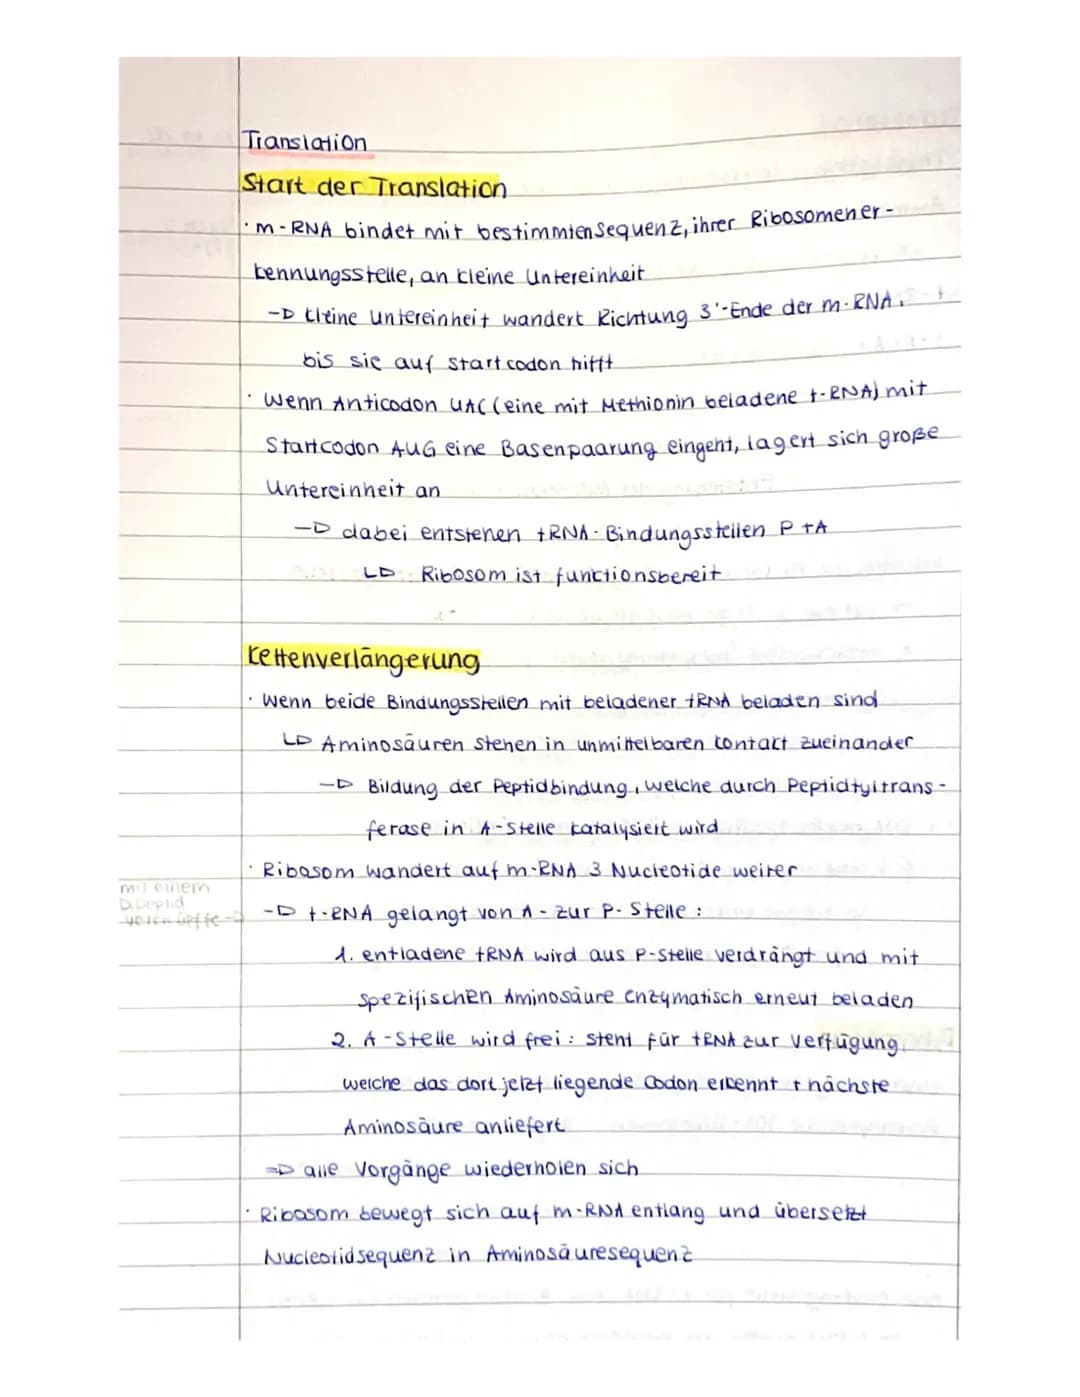 Translation
Start der Translation
· m-RNA bindet mit bestimmten Sequenz, ihrer Ribosomener-
kennungsstelle, an kleine Untereinheit
→ kleine Untereinheit wandert Richtung 3'-Ende der m-RNA,
bis sie auf Startcodon trifft
· Wenn Anticodon UAC (eine mit Methionin beladene t-RNA) mit
Startcodon AUG eine Basenpaarung eingeht, lagert sich große
Untereinheit an
→ dabei entstehen tRNA-Bindungsstellen P + A
↳ Ribosom ist funktionsbereit
Kettenverlängerung
· Wenn beide Bindungsstellen mit beladener tRNA beladen sind
↳ Aminosäuren stehen in unmittelbaren Kontakt zueinander
→ Bildung der Peptidbindung, welche durch Peptidtyltrans-
ferase in A-Stelle katalysiert wird
· Ribosom wandert auf m-RNA 3 Nucleotide weiter
mit einem
Dipeptid
→ t-RNA gelangt von A- zur P-Stelle:
1. entladene tRNA wird aus P-Stelle verdrängt und mit
spezifischen Aminosäure enzymatisch erneut beladen
2. A-Stelle wird frei: steht für tRNA zur Verfügung,
welche das dort jetzt liegende Codon erkennt + nächste
Aminosäure anliefert
⇒ alle Vorgänge wiederholen sich
· Ribosom bewegt sich auf m-RNA entlang und übersetzt
Nucleotidsequenz in Aminosäuresequenz